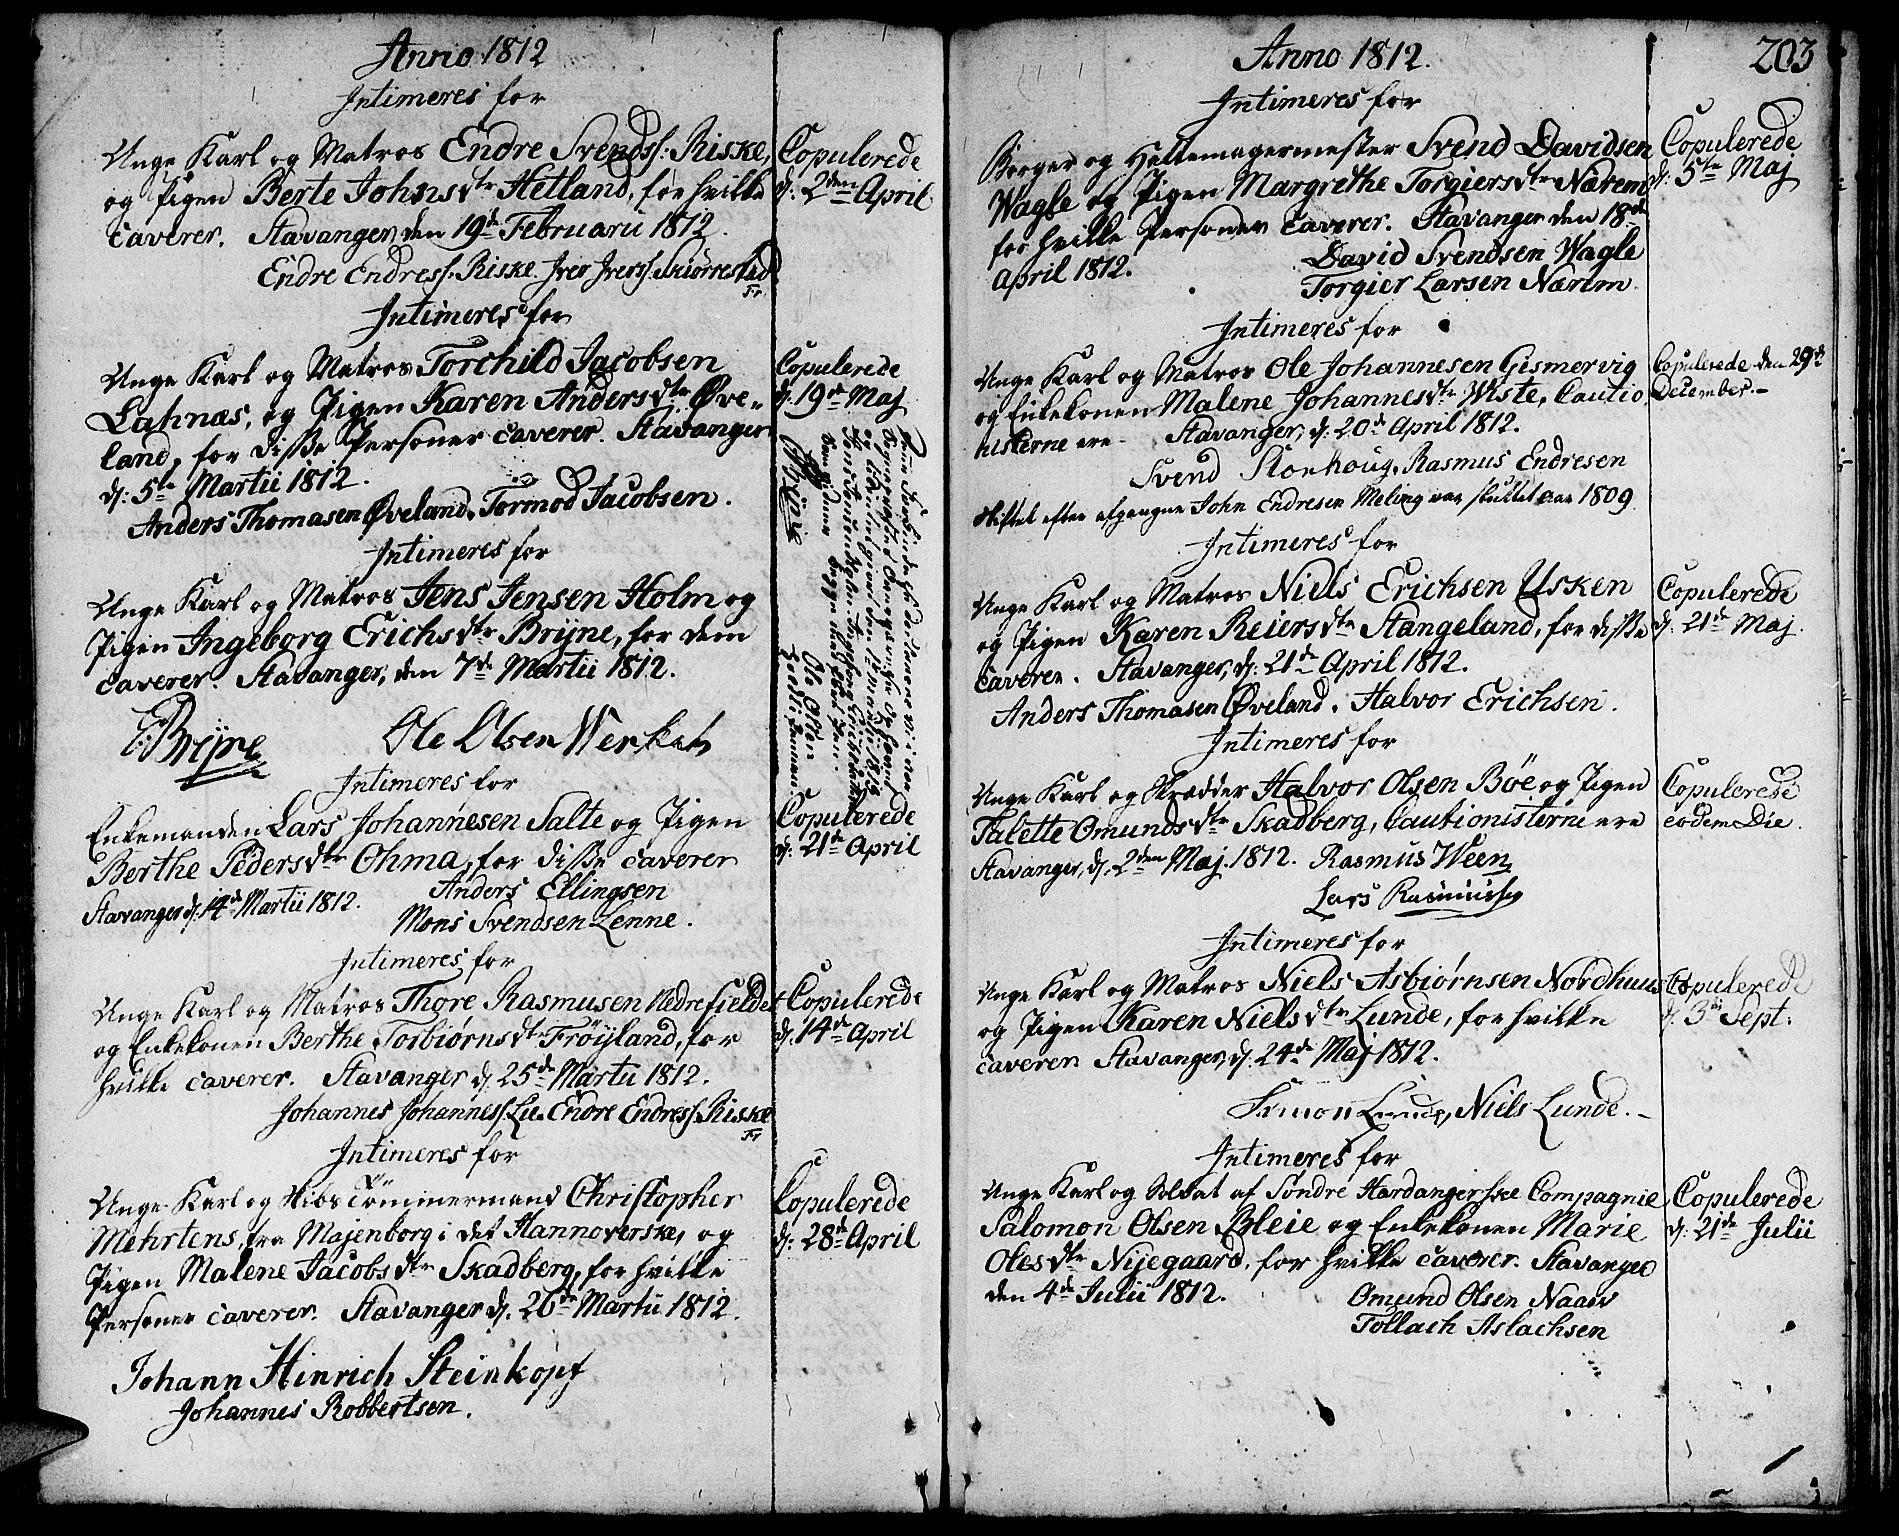 Anno 1812
Intimeres for
Unge Karl og Matros Endre Svends: Riske,
og Pigen Berte Johnsdtr Hetland, for hvilke
caverer. Stavanger, den 19de Februarii 1812.
Endre Endress: Riske. Iver Iverss: Skiørrestad
Copulerede
d: 2den April
Intimeres for
Unge Karl og Matros Torchild Jacobsen
Lahnæs, og Pigen Karen Andersdtr Øve-
land, for disse Personer caverer. Stavanger
d: 5te Martii 1812.
Anders Thomasen Øveland. Tormod Jacobsen.
Copulerede
d: 19de Maj
Intimeres for
Unge Karl og Matros Jens Jensen Holm og
Pigen Ingeborg Erichsdtr Brÿne, for dem
caverer. Stavanger, den 7de Martii 1812.
EBrÿne Ole Olsen Werket
EBrÿne
Ole Olsen
Intimeres for
Enkemanden Lars Johannesen Salte og Pigen
Berthe Pedersdtr Ohma, for disse caverer
Stavanger d: 14de Martii 1812. Anders Ellingsen
Mons Svendsen Lenne.
Copulerede
d: 21de April
Intimeres for
Unge Karl og Matros Thore Rasmusen Nedrefieldet
og Enkekonen Berthe Torbiørnsdtr Frøÿland, for
hvilke caverer. Stavanger d: 25de Martii 1812.
Johannes Johanness: Lie. Endre Endress: Riske
Copulerede
d: 14de April
Intimeres for
Unge Karl og Skibstömmermand Christopher
Mehrtens, fra Majenborg i det Hannoverske, og
Pigen Malene Jacobsdtr Skadberg, for hvilke
Personer caverer. Stavanger d: 26de Martii 1812.
Johann Hinrich Steinkopf
Johannes Robbertsen.
Copulerede
d: 28de April
Anno 1812.
203
Intimeres for
Borger og Hattemagermester Svend Davidsen
Wagle og Pigen Margrethe Torgiersdtr Nærem
for hvilke Personer caverer. Stavanger den 18de
April 1812. David Svendsen Wagle
Torgier Larsen Nærem.
Copulerede
d: 5te Maj
Intimeres for
Unge Karl og Matros Ole Johannesen Gismervig
og Enkekonen Malene Johannesdtr Wiste, Cautio
nisterne ere. Stavanger, d: 20de April 1812.
Svend Stonhoug, Rasmus Endresen
Skiftet efter afgangne John Endresen Meling var sluttet Aar 1809.
Copulerede den 29de
December.
Intimeres for
Unge Karl og Matros Niels Erichsen Usken
og Pigen Karen Reiersdtr Stangeland, for disse
caverer. Stavanger, d: 21de April 1812.
Anders Thomasen Øveland. Halvor Erichsen.
Copulerede
d: 21de Maj.
Intimeres for
Unge Karl og Skrædder Halvor Olsen Bøe og Pigen
Talette Omundsdtr Skadberg, Cautionisterne ere
Stavanger, d: 2den Maj. 1812. Rasmus Ween
Lars Rasmussen
Copulerede
eodem Die.
Intimeres for
Unge Karl og Matros Niels Asbiørnsen Nordhuus
og Pigen Karen Nielsdtr Lunde, for hvilke
caverer Stavanger, d: 24de Maj 1812.
Simon Lunde, Niels Lunde.
Copulerede
d: 3die Sept:
Intimeres for
Unge Karl og Soldat af Søndre Hardangerske Compagnie
Salomon Olsen Bleie og Enkekonen Marie
Olesdtr Nÿegaard, for hvilke caverer. Stavanger
den 4de Julii 1812. Omund Olsen Naaw
Tollach Aslachsen
Copulerede
d: 21de Julii